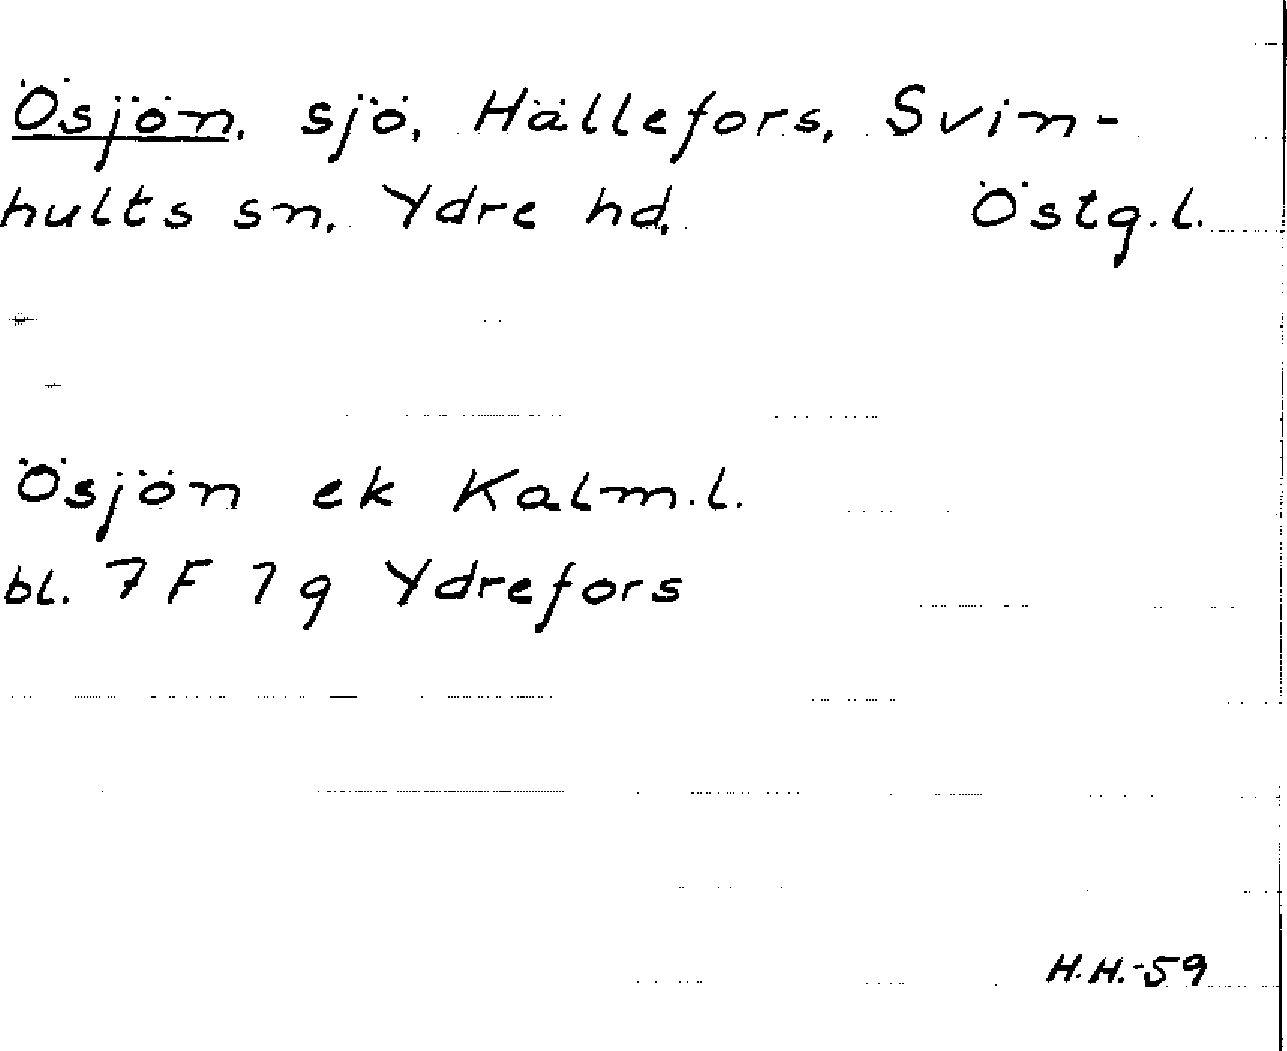 Ösjön, sjö, Hällefors, Svin-
hults sn, Ydre hd, Östg.l.
Ösjön ek Kalm.l.
bl. 7 F 7 g Ydrefors
H.H.-59